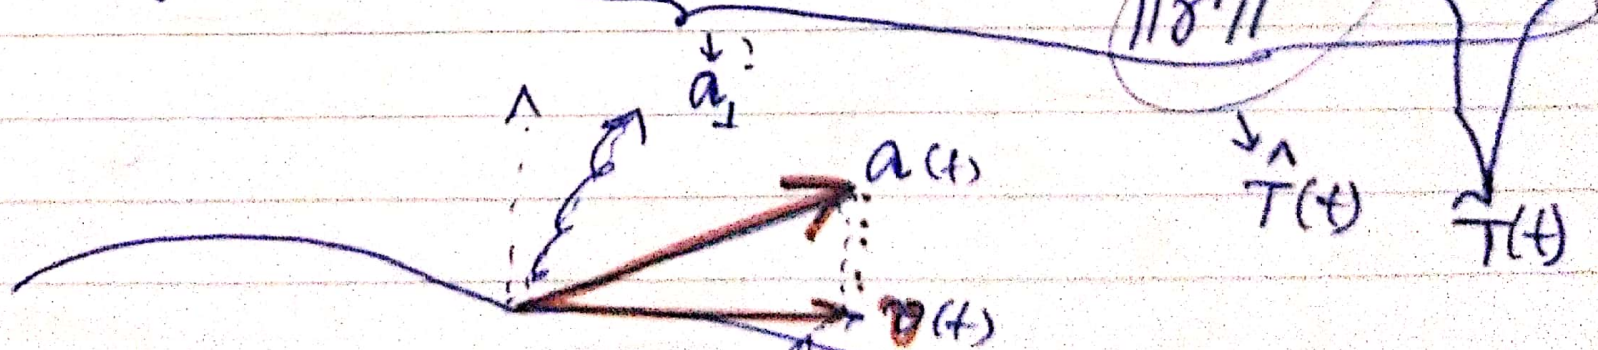 ||γ'||
a⊥?
a(t)
T̂(t)
T̃(t)
v(t)